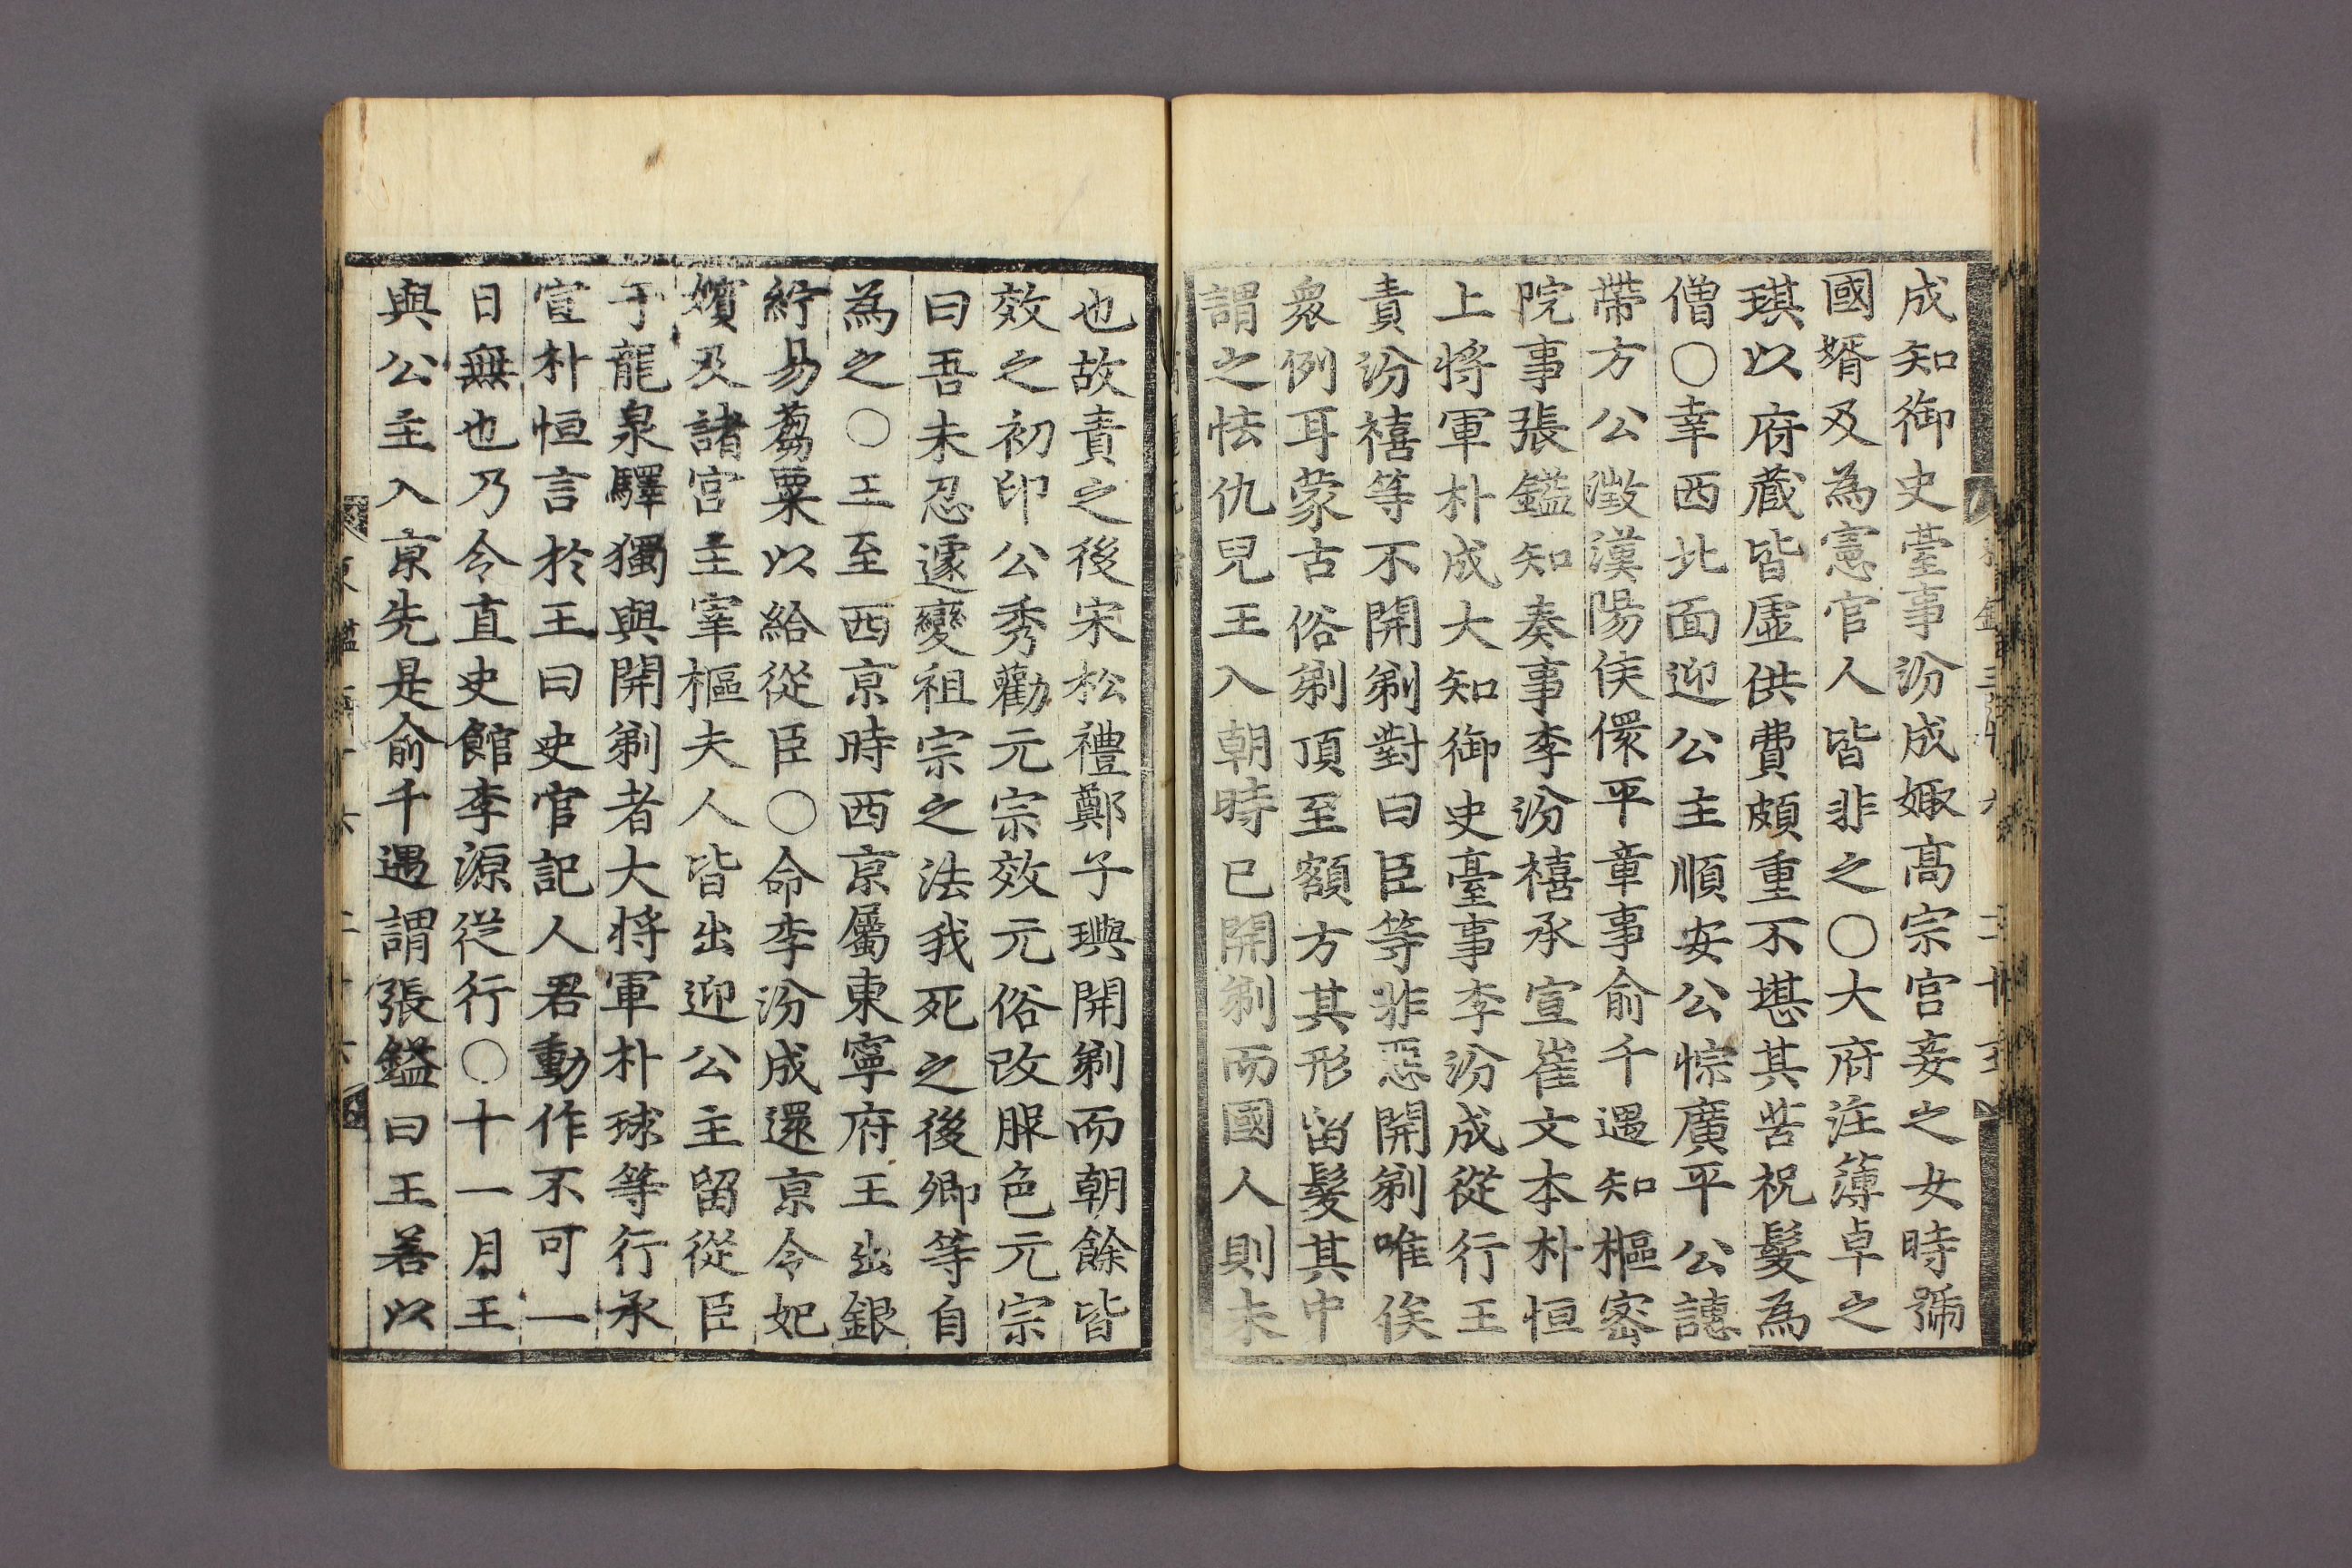 成知御史臺事汾成娵高宗宮妾之女時號
國婿及為憲官人皆非之○大府注薄卓之
琪以府藏皆虛供費頗重不堪其苦祝髮為
僧○幸西北面迎公主順安公悰廣平公譓
帶方公澂漢陽侯儇平章事俞千遇知樞密
院事張鎰知奏事李汾禧承宣崔文本朴恒
上將軍朴成大知御史臺事李汾成從行王
責汾禧等不開剃對曰臣等非惡開剃唯俟
衆例耳蒙古俗剃頂至額方其形留髮其中
謂之怯仇兒王入朝時已開剃而國人則未
也故責之後宋松禮鄭子璵開剃而朝餘皆
效之初印公秀勸元宗效元俗改服色元宗
曰吾未忍遽變祖宗之法我死之後卿等自
為之○王至西京時西京屬東寧府王出銀
紵易蒭粟以給從臣○命李汾成還京令妃
嬪及諸宮主宰樞夫人皆出迎公主留從臣
于龍泉驛獨與開剃者大將軍朴球等行承
宣朴恒言於王曰史官記人君動作不可一
日無也乃令直史館李源從行○十一月王
與公主入京先是俞千遇謂張鎰曰王若以